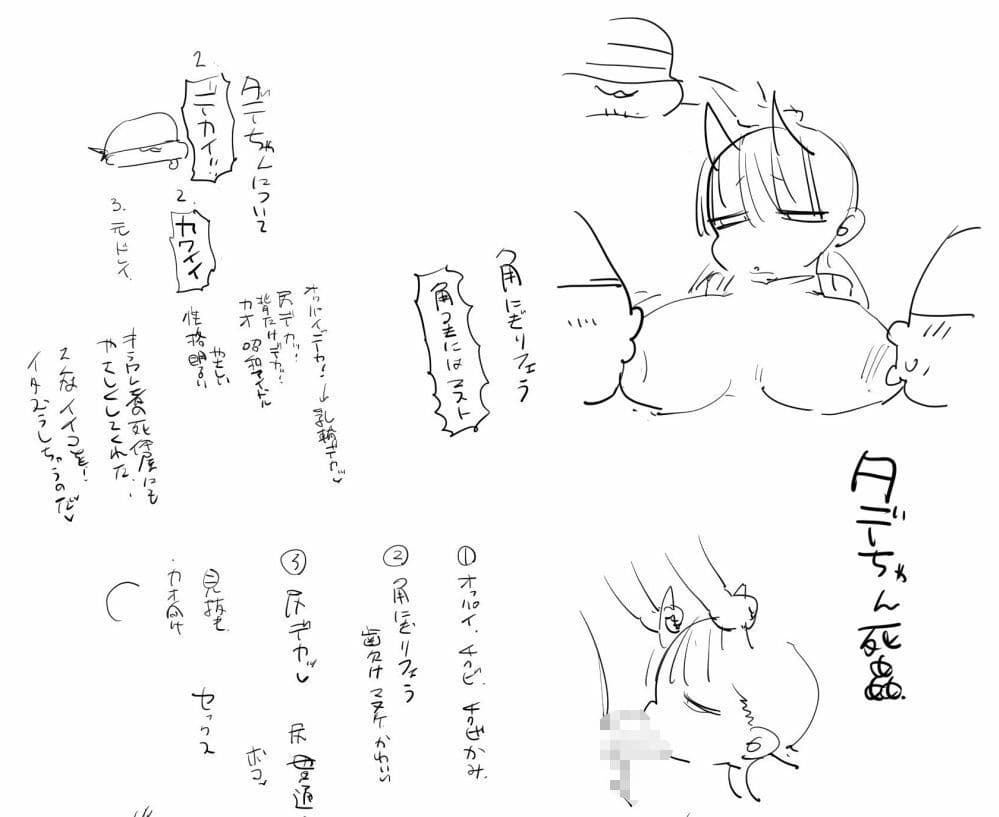 タデーちゃんについて
2.
デーカイ!!
2.
カワイイ
3. 元ドレイ
オッパイデーカ!→乳輪デカッ
尻デカッ!
背たけデカッ!
カオ 昭和アイドル
やさしい
性格明るい
キラワレ者の死体屋にも
やさしくしてくれた
そんなイイコを!
イタズラしちゃうのだ
角にぎりフェラ
角つきにはマスト
タデーちゃん死
① オッパイ、チクビ、
② 角にぎりフェラ
歯欠けマヌケかわいい
③ 尻デカッ
尻 通
ボコ
見抜き
・カオ
セックス